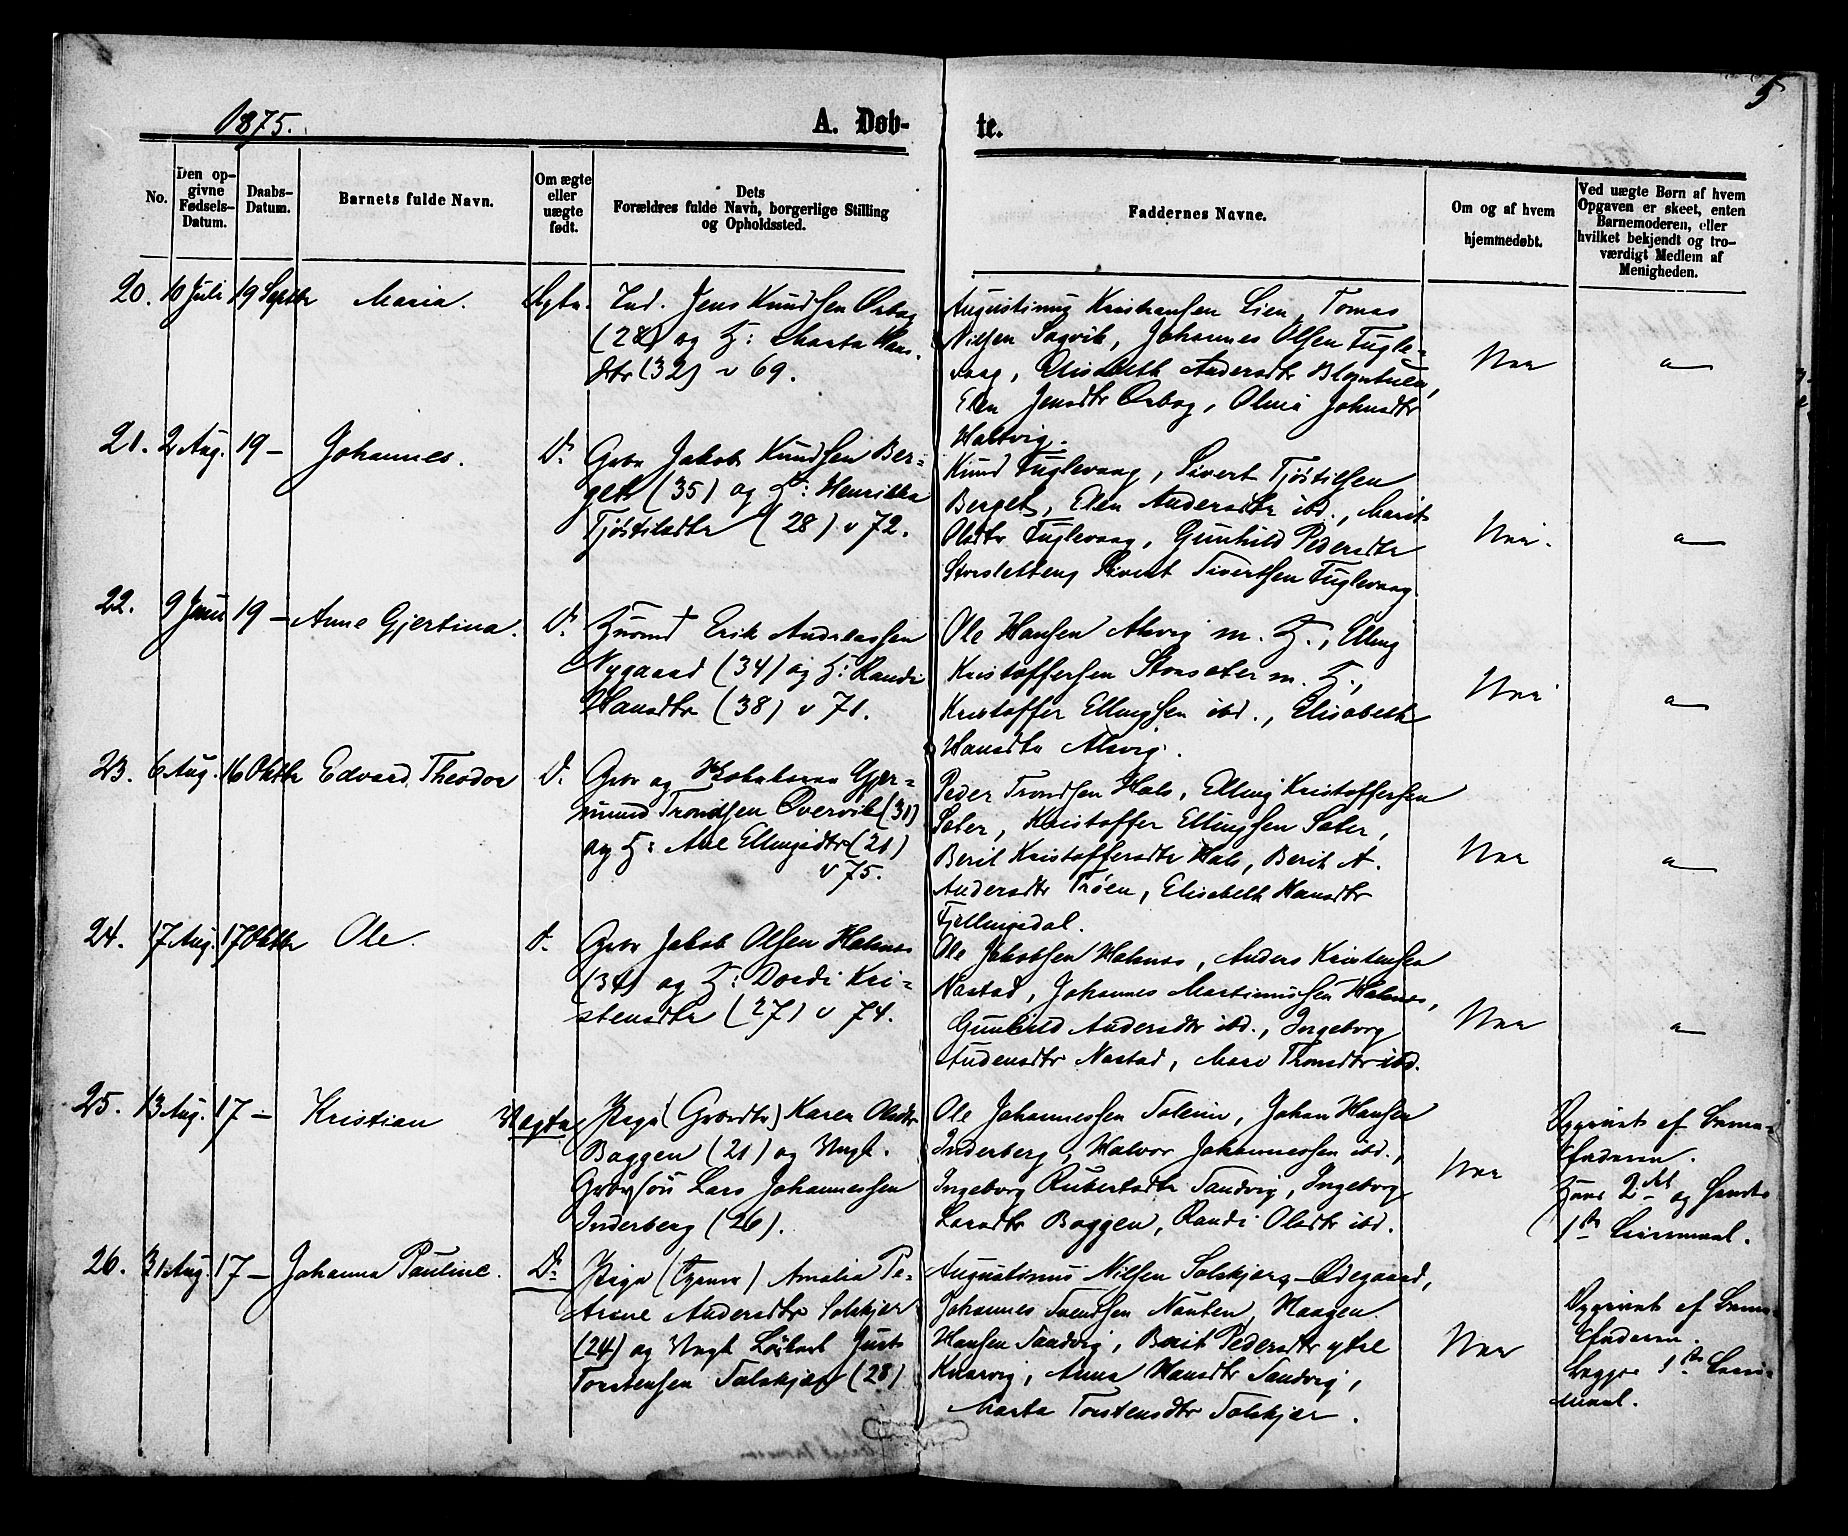 1875.
A. Døb-
te.
5
No.
Den op-
givne
Fødsels-
Datum.
Daabs-
Datum.
Barnets fulde Navn.
Om ægte
eller
uægte
født.
Dets
Forældres fulde Navn, borgerlige Stilling
og Opholdssted.
Faddernes Navne.
Om og af hvem
hjemmedøbt.
Ved uægte Børn af hvem
Opgaven er skeet, enten
Barnemoderen, eller
hvilket bekjendt og tro-
værdigt Medlem af
Menigheden.
20. 10 Juli 19 Septbr Maria. Ægte. Ind. Jens Knudsen Ørbog
(28) og H: Marta Hans-
dtr (32) v 69.
Augustinus Kristiansen Lien, Tomas
Nilsen Sagvik, Johannes Olsen Fugle-
vaag, Elisabeth Andersdtr Blomtuen,
Elen Jensdtr Ørbog, Olina Johnsdtr
Halsvig.
Nei
21. 2 Aug. 19 – Johannes. Do Gbr Jakob Knudsen Ber-
get (35) og H: Henrikka
Tjöstilsdtr (28) v 72.
Knud Fuglevaag, Sivert Tjöstilsen
Berget, Elen Andersdtr ibd., Marit
Olsdtr Fuglevaag, Gunhild Pedersdtr
Storsletten, Sivert Sivertsen Fuglevaag
Nei.
22. 9 Juni 19 – Anne Gjertina. Do Husmd Erik Andreassen
Nygaard (34) og H: Randi
Hansdtr (38) v 71.
Ole Hansen Alsvig m. H., Elling
Kristoffersen Storsæter m. H.,
Kristoffer Ellingsen ibd., Elisabeth
Hansdtr Alsvig.
Nei
23. 6 Aug. 16 Oktbr Edvard Theodor D. Gbr og Gjer-
mund Trondsen Overvik (31)
og H: Ane Ellingsdtr (21)
v 75.
Peder Trondsen Hals, Elling Kristoffersen
Sæter, Kristoffer Ellingsen Sæter,
Berit Kristoffersdtr Hals, Berit A.
Andersdtr Trøen, Elisabeth Hansdtr
Fjellingsdal.
Nei
24. 17 Aug. 17 Oktbr Ole. d. Gbr Jakob Olsen Halsnes
(34) og H: Dordi Kri-
stensdtr (27) v 74.
Ole Jakobsen Halsnes, Anders Kristensen
Nastad, Johannes Martinussen Halsnes,
Gunhild Andersdtr ibd., Ingeborg
Audensdtr Nastad, Mari Tronsdtr ibd.
Nei
25. 13 Aug. 17 – Kristian Uægte Pige (Grdrdtr) Karen Olsdtr
Baggen (21) og Ungk.
Gbrsøn Lars Johannessen
Inderberg (26).
Ole Johannessen Solem, Johan Hansen
Inderberg, Halvor Johannessen ibd.,
Ingeborg Rubertsdtr Sandvig, Ingeborg
Larsdtr Baggen, Randi Olsdtr ibd.
Nei
Opgivet af Barne-
faderen.
Hans 2det og hendes
1ste Leiermaal.
26. 31 Aug. 17 – Johanna Pauline. Do Pige (Tjener) Amalia Pe-
trine Andersdtr Solskjær
(24) og Ungk Just
Torstensen Solskjær (28)
Augustinus Nilsen Solskjærs-Ødegaard,
Johannes Svendsen Nauten, Haagen
Hansen Sandvig, Berit Pedersdtr ytre
Kvarvig, Anna Hansdtr Sandvig,
Marta Torstensdtr Solskjær.
Nei
Opgivet af Barne-
faderen.
Begges 1ste Leier-
maal.